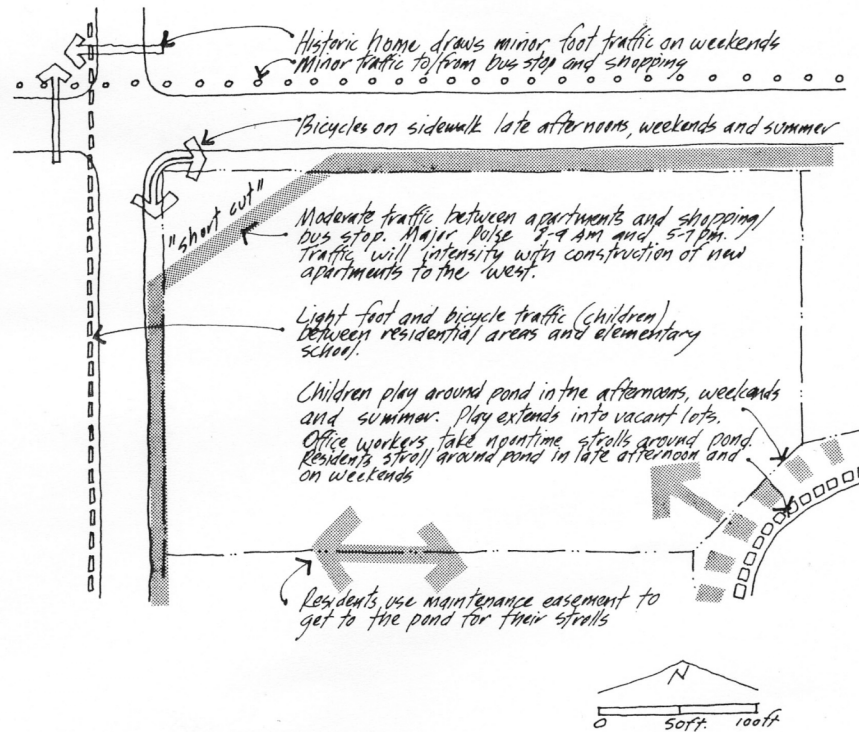 Historic home draws minor foot traffic on weekends
Minor traffic to/from bus stop and shopping
Bicycles on sidewalk late afternoons, weekends and summer
"short cut"
Moderate traffic between apartments and shopping/
bus stop. Major Pulse 7-9 AM and 5-7 pm.
Traffic will intensity with construction of new
apartments to the west.
Light foot and bicycle traffic (children)
between residential areas and elementary
school.
Children play around pond in the afternoons, weekends
and summer. Play extends into vacant lots.
Office workers take noontime strolls around pond.
Residents stroll around pond in late afternoon and
on weekends
Residents use maintenance easement to
get to the pond for their strolls
N
0 50ft. 100ft